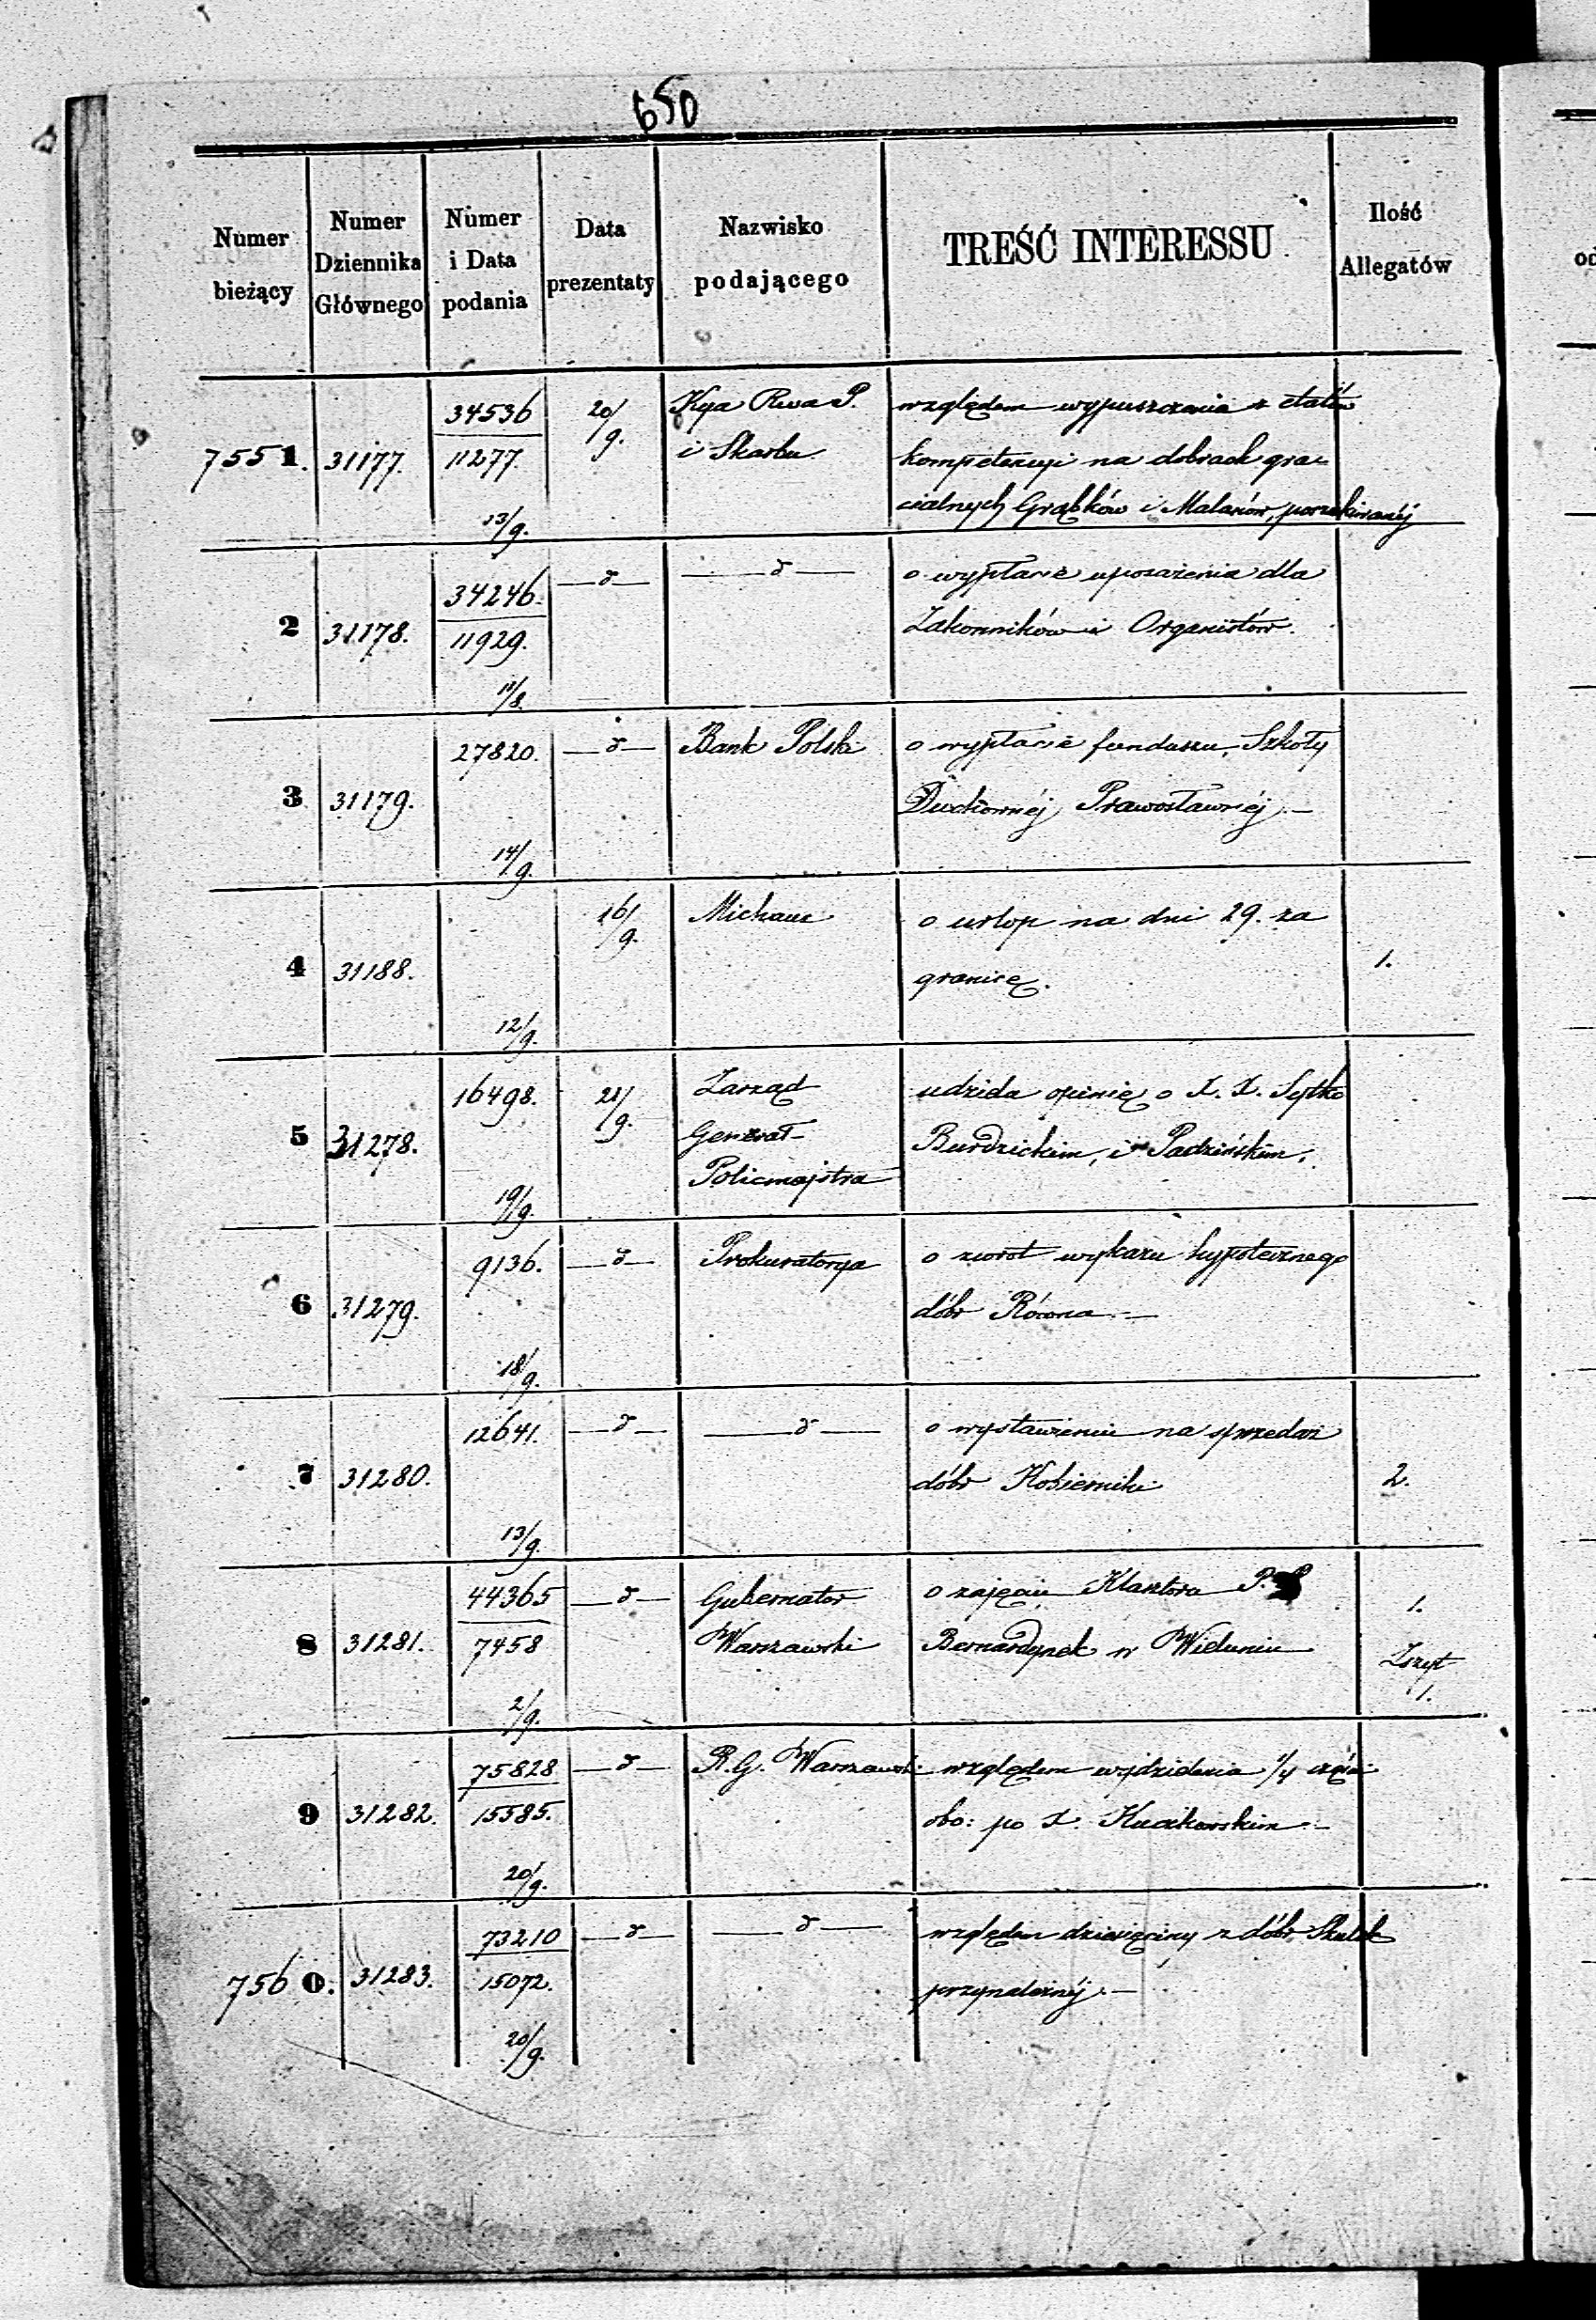 650
Numer bieżący
Numer Dziennika Głównego
Numer i Data podania
Data prezentaty
Nazwisko podającego
TREŚĆ INTERESSU.
Ilość Allegatów
7551. 31177. 34536 20/9. Kya Rwa P. względem wypuszczenia z etatów
11277. i Skarbu kompetencyi na dobrach gra-
13/9. cialnych Grąbków i Malanów, poszukiwanéj
2 31178. 34246. —d— —d— o wypłacie uposażenia dla
11929. Zakonników i Organistów.
11/8.
3 31179. 27820. —d— Bank Polski o wypłacie funduszu Szkoły
Duchownéj Prawosławnéj.—
14/9.
4 31188. 16/9. Michaux o urlop na dni 29. za 1.
granicę.
12/9.
5 31278. 16498. 21/9. Zarząd udziela opinię o X. X.
Generał- Burdzickim, i Padzińskim.
19/9. Policmajstra
6 31279. 9136. —d— Prokuratorya o zwrot wykazu hypotecznego
dóbr Równa.—
18/9.
7 31280. 12641. —d— —d— o wystawieniu na sprzedaż 2.
dóbr Kobierniki
13/9.
8 31281. 44365 —d— Gubernator o zajęciu Klasztoru P. 1.
7458 Warszawski Bernardynek w Wieluniu Zszyt
2/9. 1.
9 31282. 75828 —d— R. G. Warszawski względem wydzielenia 1/4 części
15585. obo: po X.
20/9.
7560. 31283. 73210 —d— —d— względem dziesięciny z dóbr
15072. przynależnéj.—
20/9.